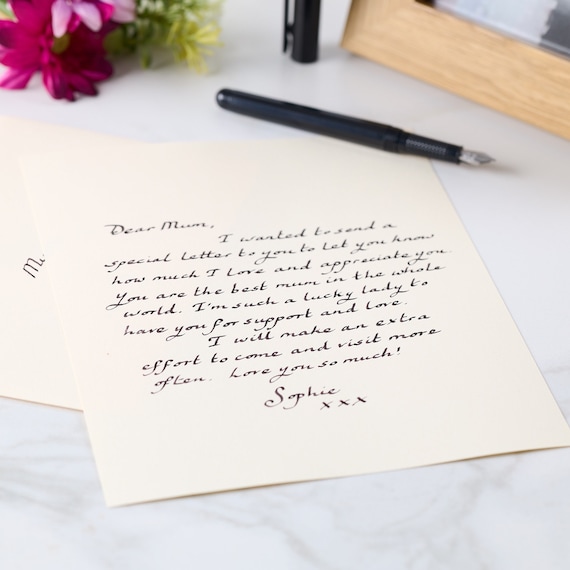 Dear Mum,
I wanted to send a
special letter to you to let you know
how much I love and appreciate you.
You are the best mum in the whole
world. I'm such a lucky lady to
have you for support and love.
I will make an extra
effort to come and visit more
often. Love you so much!
Sophie
xxx
M